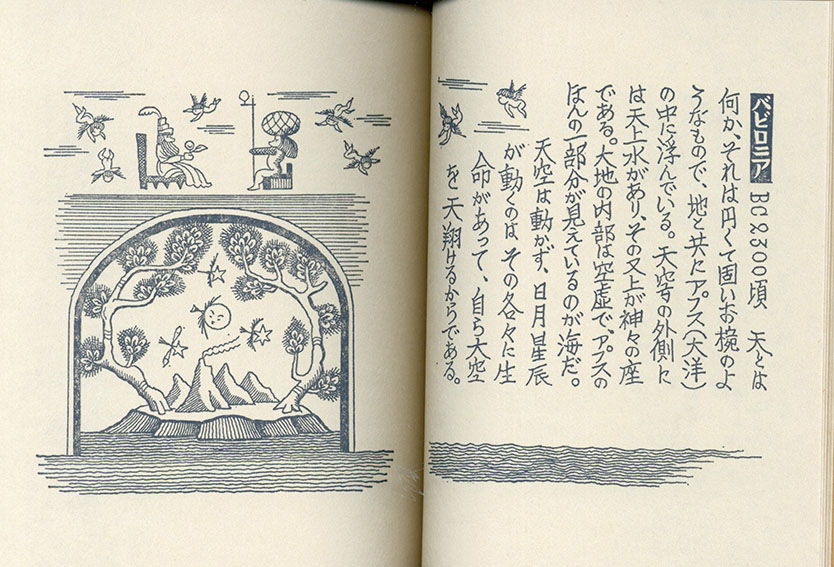 バビロニア BC2500頃 天とは
何か、それは円くて固いお椀のよ
うなもので、地と共にアプス(大洋)
の中に浮んでいる。天空の外側に
は天上水があり、その又上が神々の座
である。大地の内部は空虚で、アプスの
ほんの一部分が見えているのが海だ。
天空は動かず、日月星辰
が動くのは その各々に生
命があって、自ら大空
を天翔けるからである。